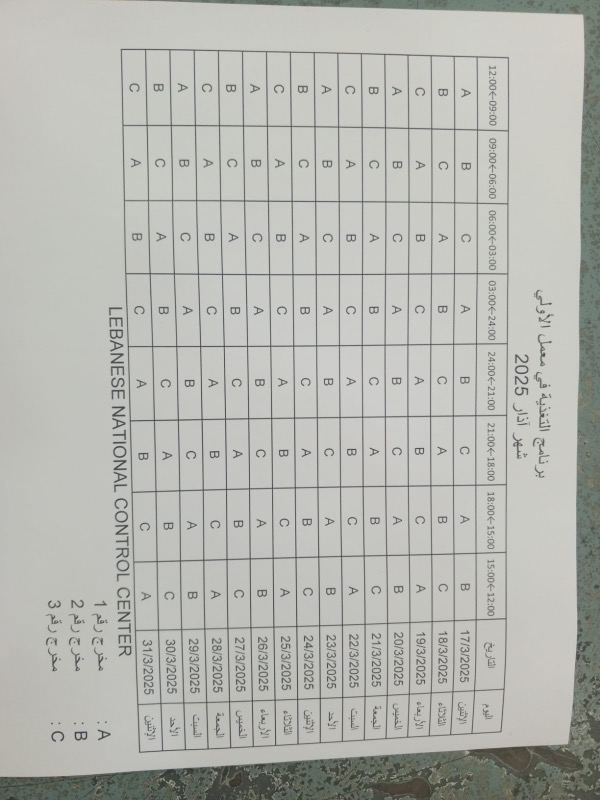 برنامج التغذية في معمل الأولي
شهر آذار 2025
اليوم التاريخ 15:00←12:00 18:00←15:00 21:00←18:00 24:00←21:00 03:00←24:00 06:00←03:00 09:00←06:00 12:00←09:00
الإثنين 17/3/2025 B A C B A C B A
الثلاثاء 18/3/2025 C B A C B A C B
الأربعاء 19/3/2025 A C B A C B A C
الخميس 20/3/2025 B A C B A C B A
الجمعة 21/3/2025 C B A C B A C B
السبت 22/3/2025 A C B A C B A C
الأحد 23/3/2025 B A C B A C B A
الإثنين 24/3/2025 C B A C B A C B
الثلاثاء 25/3/2025 A C B A C B A C
الأربعاء 26/3/2025 B A C B A C B A
الخميس 27/3/2025 C B A C B A C B
الجمعة 28/3/2025 A C B A C B A C
السبت 29/3/2025 B A C B A C B A
الأحد 30/3/2025 C B A C B A C B
الإثنين 31/3/2025 A C B A C B A C
LEBANESE NATIONAL CONTROL CENTER
A : مخرج رقم 1
B : مخرج رقم 2
C : مخرج رقم 3